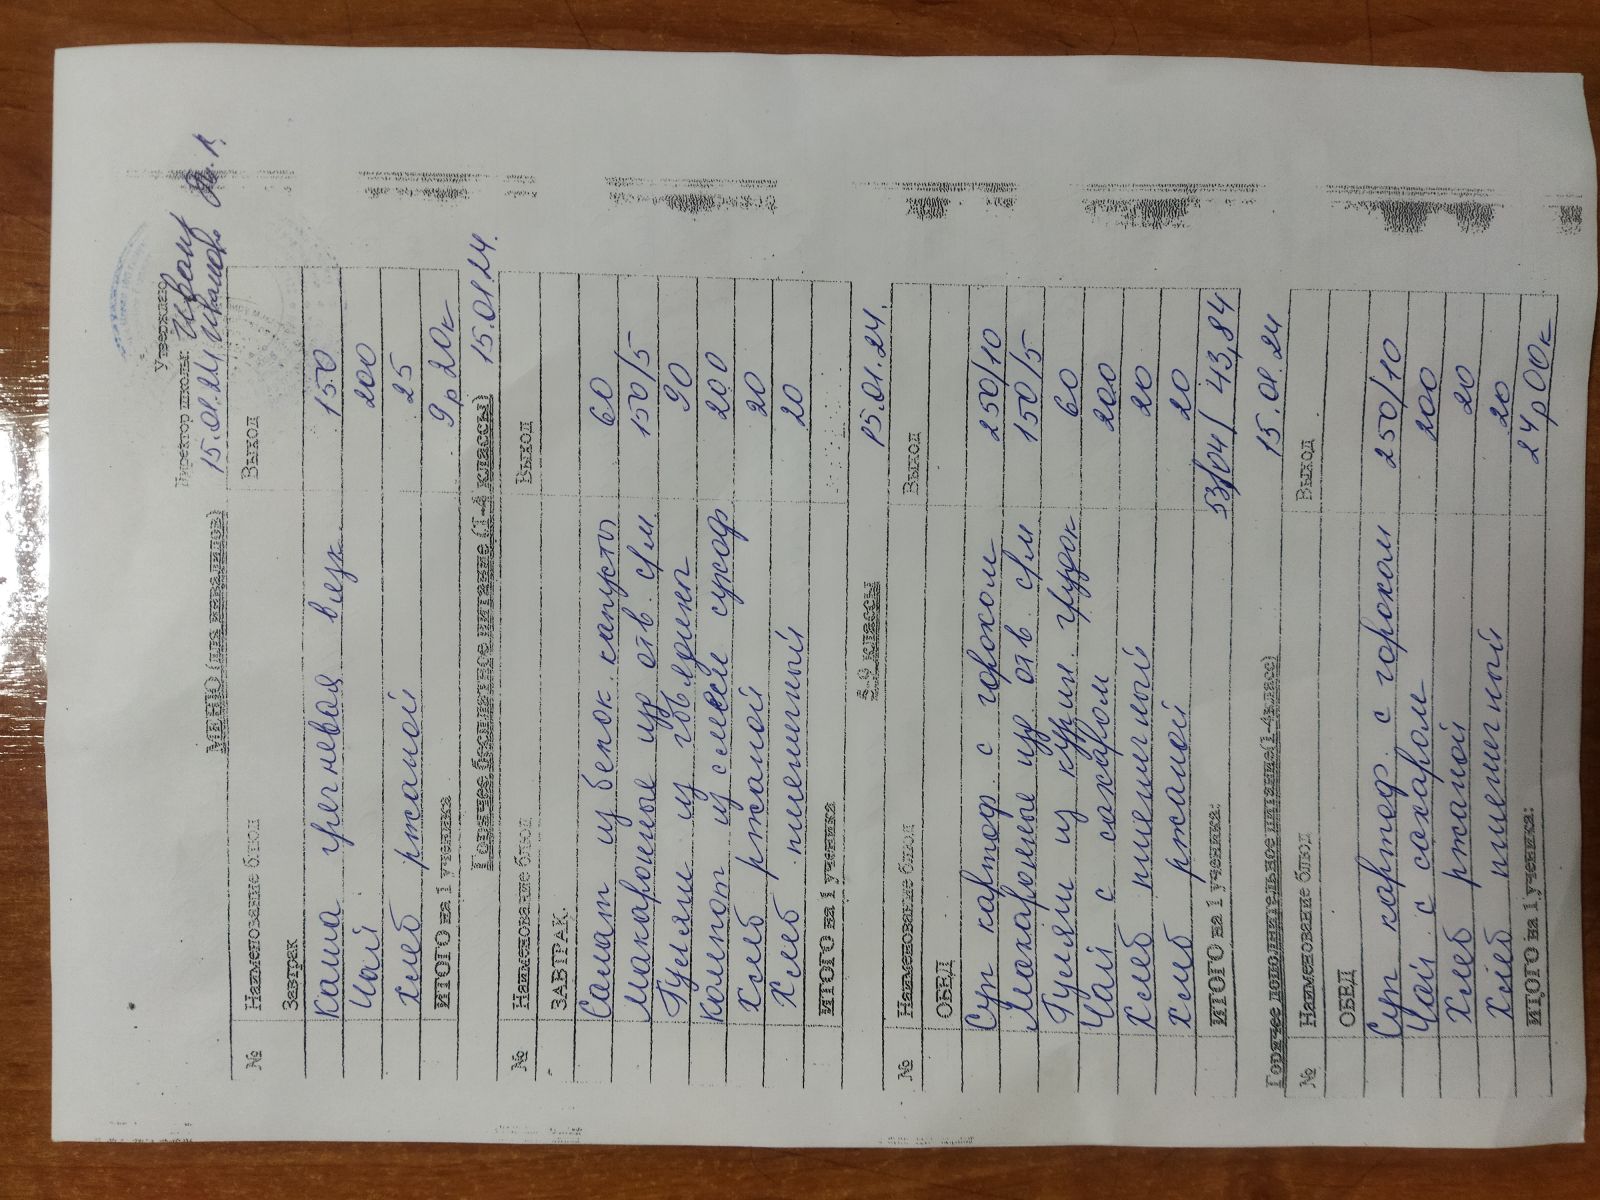 Утверждаю
Директор школы:
15.01.24
МЕНЮ (для инвалидов)
№ Наименование блюд Выход
Завтрак
Каша гречневая вязк. 150
Чай 200
Хлеб ржаной 25
ИТОГО на 1 ученика 9р 20к
Горячее бесплатное питание (1-4 классы) 15.01.24.
№ Наименование блюд Выход
ЗАВТРАК.
Салат из белок. капусты 60
Макаронные изд отв. с/м 150/5
Гуляш из говядины 90
Компот из смеси сухоф. 200
Хлеб ржаной 20
Хлеб пшеничный 20
ИТОГО на 1 ученика
5-9 классы 15.01.24.
№ Наименование блюд Выход
ОБЕД
Суп картоф. с горохом 250/10
Макаронные изд отв. с/м 150/5
Гуляш из курин. грудок 60
Чай с сахаром 200
Хлеб пшеничный 20
Хлеб ржаной 20
ИТОГО на 1 ученика: 53,04 / 43,84
Горячее дополнительное питание(1-4класс) 15.01.24
№ Наименование блюд Выход
ОБЕД
Суп картоф. с горохом 250/10
Чай с сахаром 200
Хлеб ржаной 20
Хлеб пшеничный 20
ИТОГО на 1 ученика: 24р00к